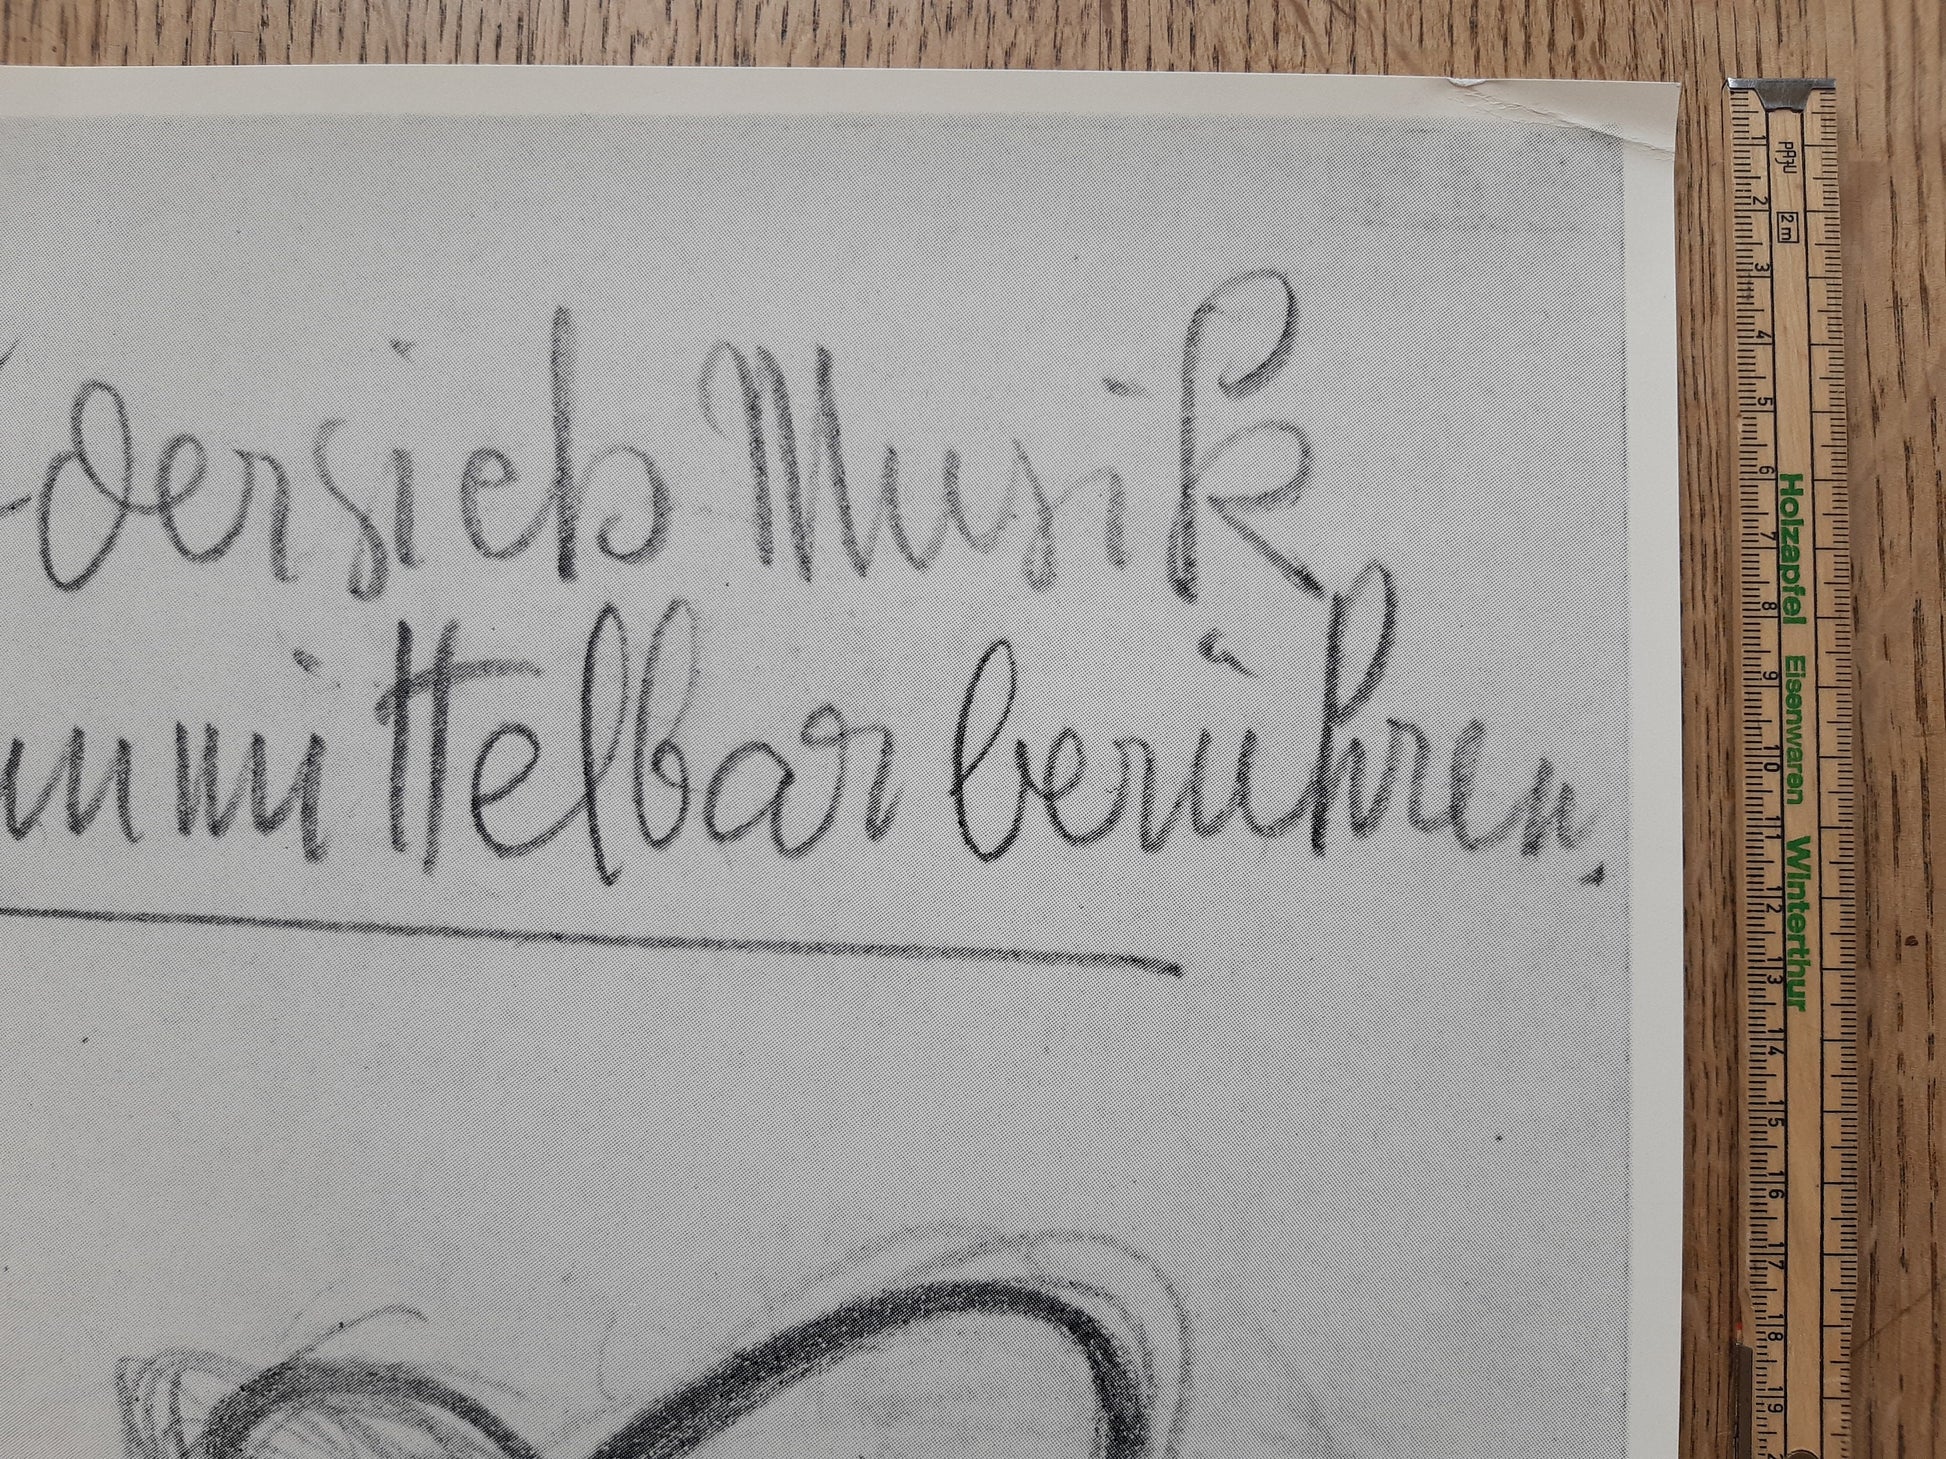 der sich Musik
unmittelbar berühren.
2m
Holzapfel Eisenwaren Winterthur
1 2 3 4 5 6 7 8 9 10 11 12 13 14 15 16 17 18 19